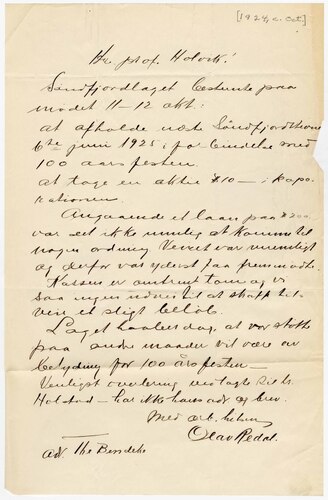 [1924, c. Oct.]
Hr. prof. Holvik!
Søndfjordlaget bestemte paa
mødet 11-12 okt:
at afholde næste Søndfjordstevne
6te juni 1925 i forbindelse med
100 aars festen.
at tage en aktie $10— i kopo-
rationen.
Angaaende et laan paa $200
var det ikke mulig at komme til
nogen ordning. Veiret var
og derfor var yderst faa fremmødte.
Kassen er omtrent tom og vi
saa ingen at skaffe
et sligt beløb.
Laget haaber dog, at vor støtte
paa andre maader vil være av
betydning for 100 års festen—
Venligst
Holstad— har ikke hans adr og brev.
Med ærb. hilsen
Olav Redal.
adr The Bensdeke